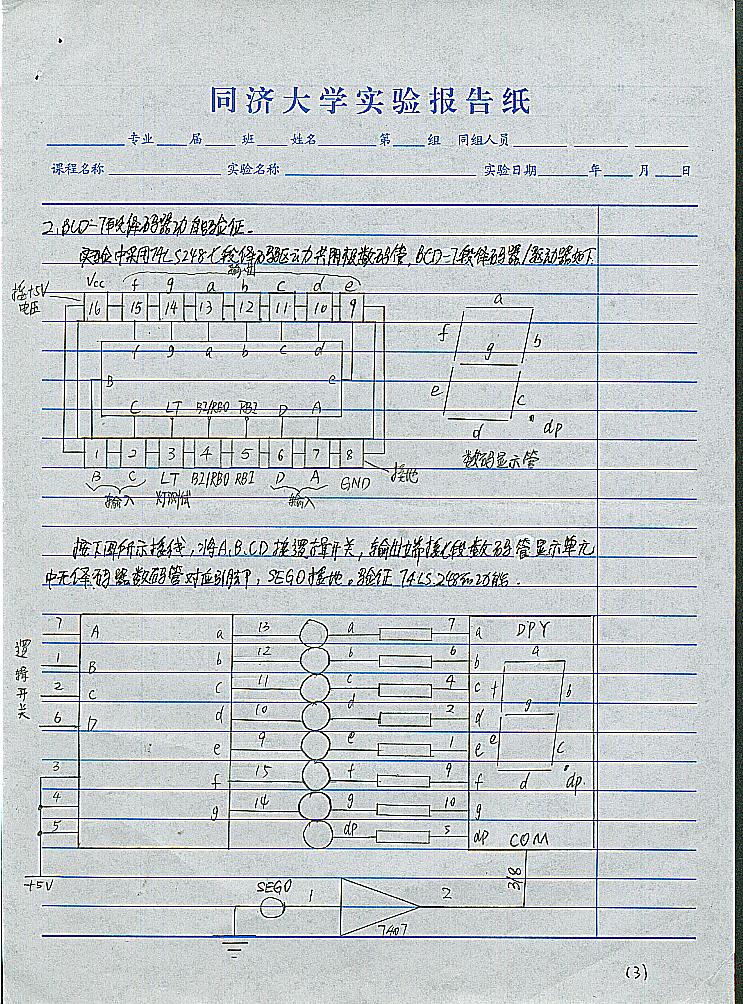 同济大学实验报告纸
专业 届 班 姓名 第 组 同组人员
课程名称 实验名称 实验日期 年 月 日
2.BCD-7段译码器功能验证.
实验中采用74LS248七段译码驱动共阴极数码管,BCD-7段译码器/驱动器如下
输出
接+5V Vcc f g a b c d e
电压 16 15 14 13 12 11 10 9
f g a b c d
B e
C LT BI/RBO RBI D A
1 2 3 4 5 6 7 8
B C LT BI/RBO RBI D A GND 接地
输入 灯测试 输入
a
f b
g
e c
d dp
数码显示管
按下图所示接线,将A.B.C.D接逻辑开关,输出端接七段数码管显示单元
中无译码器数码管对应引脚,SEG0接地。验证74LS248的功能.
逻辑开关
7 A a 13 a 7 a DPY
1 B b 12 b 6 b a
2 C c 11 c 4 c f b
6 D d 10 d 2 d g
e 9 e 1 e e c
3 f 15 f 9 f d dp
4 g 14 g 10 g
5 dp 5 dp COM
+5V SEG0 1 2 3/8
7407
(3)